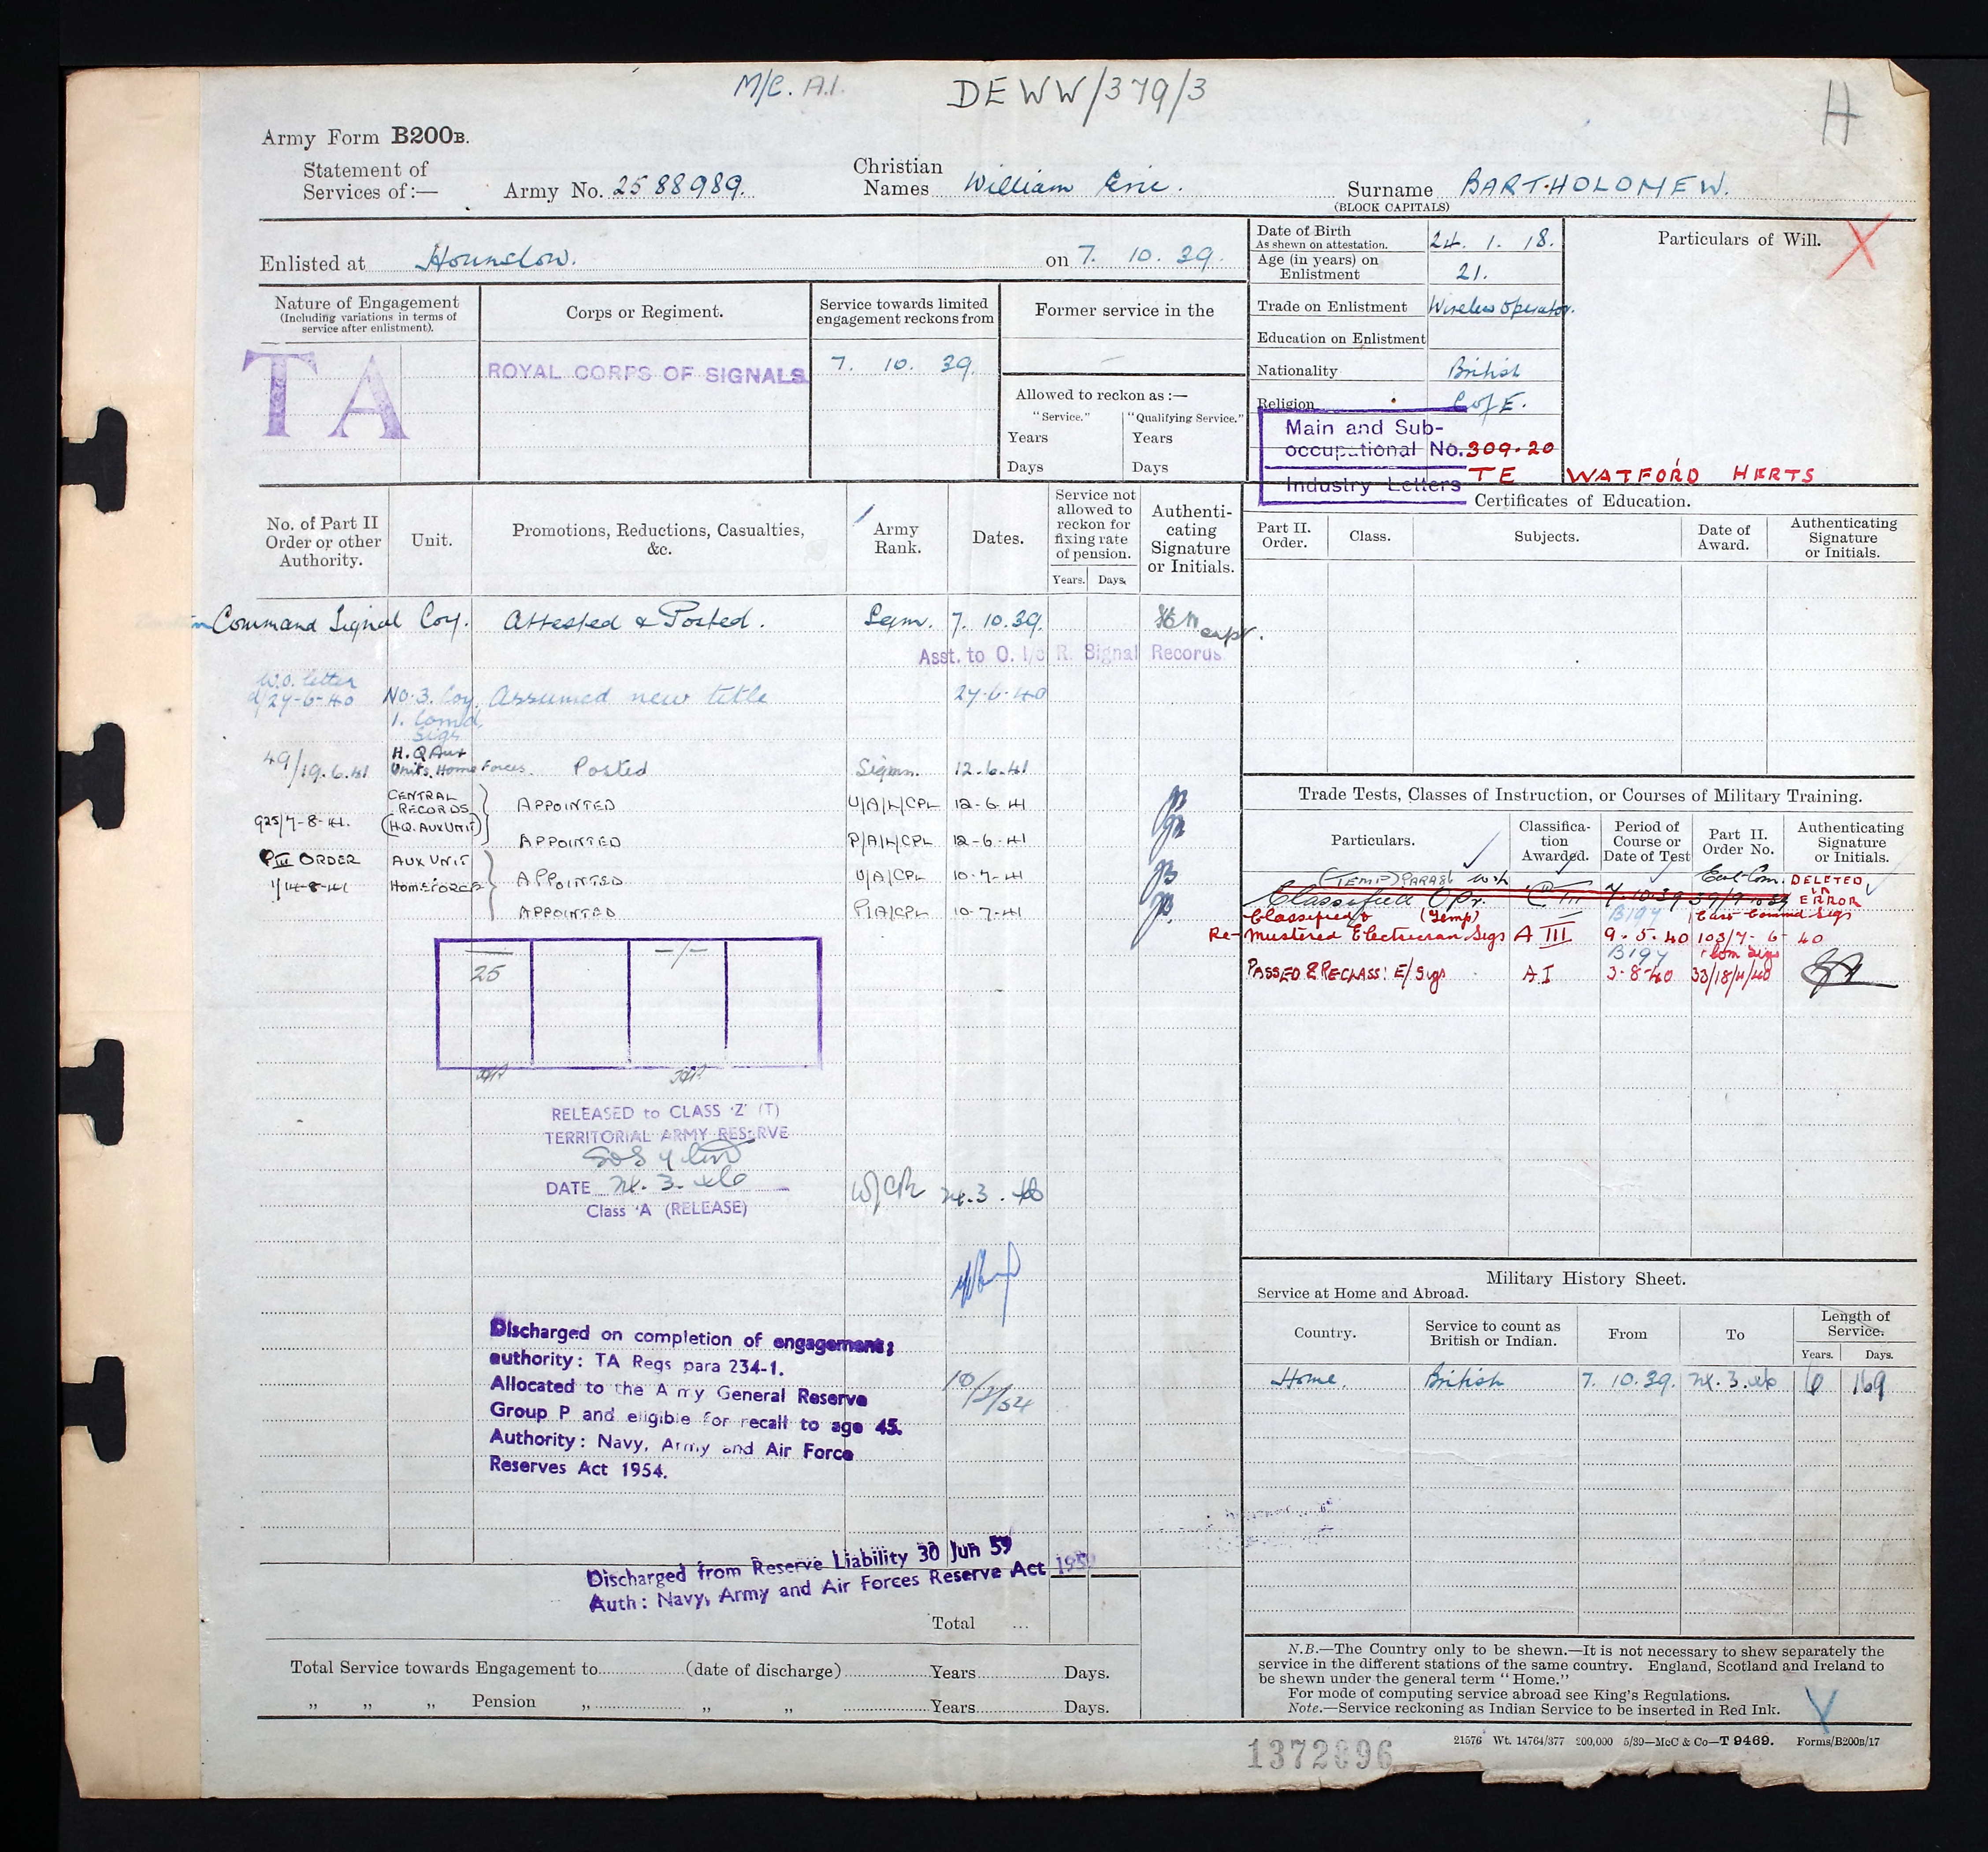 M/C. A.I.
DEWW/379/3
H
Army Form B200B.
Statement of
Services of:—
Army No. 2588989.
Christian
Names William Eric.
Surname BARTHOLOMEW.
(BLOCK CAPITALS)
Enlisted at Hounslow. on 7. 10. 39.
Date of Birth
As shewn on attestation.
24. 1. 18.
Age (in years) on
Enlistment
21.
Trade on Enlistment Wireless Operator.
Education on Enlistment
Nationality British
Religion C of E.
Particulars of Will. X
Main and Sub-
occupational No. 309.20
Industry Letters TE
WATFORD HERTS
Nature of Engagement
(Including variations in terms of
service after enlistment).
TA
Corps or Regiment.
ROYAL CORPS OF SIGNALS
Service towards limited
engagement reckons from
7. 10. 39.
Former service in the
—
Allowed to reckon as :—
"Service." "Qualifying Service."
Years Years
Days Days
No. of Part II
Order or other
Authority.
Unit.
Promotions, Reductions, Casualties,
&c.
Army
Rank.
Dates.
Service not
allowed to
reckon for
fixing rate
of pension.
Years. Days.
Authenti-
cating
Signature
or Initials.
Command Signal Coy. Attested & Posted. Sgmn. 7. 10. 39.
capt.
Asst. to O. i/c R. Signal Records
W.O. letter
d/27-6-40 No. 3. Coy. Assumed new title 27-6-40
1. Comd.
Sigs
49/19.6.41 H.Q Aux
Units. Home Forces. Posted Sigmn. 12.6.41
CENTRAL
RECORDS
(HQ. AUX UNIT)
925/7-8-41.
APPOINTED U/A/L/CPL 12-6-41
APPOINTED P/A/L/CPL 12-6-41
PIII ORDER AUX UNIT
1/14-8-41 HOME FORCES
APPOINTED U/A/CPL 10-7-41
APPOINTED P/A/CPL 10-7-41
25 -/-
RELEASED to CLASS 'Z' (T)
TERRITORIAL ARMY RESERVE
DATE 24.3.46
Class 'A (RELEASE)
W/CPL 24.3.46
Discharged on completion of engagement;
authority: TA Regs para 234-1.
Allocated to the Army General Reserve
Group P and eligible for recall to age 45.
Authority: Navy, Army and Air Force
Reserves Act 1954.
Discharged from Reserve Liability 30 Jun 59
Auth: Navy, Army and Air Forces Reserve Act
Total ...
Total Service towards Engagement to (date of discharge) Years Days.
„ „ „ Pension „ „ „ Years Days.
Certificates of Education.
Part II.
Order.
Class.
Subjects.
Date of
Award.
Authenticating
Signature
or Initials.
Trade Tests, Classes of Instruction, or Courses of Military Training.
Particulars.
Classifica-
tion
Awarded.
Period of
Course or
Date of Test
Part II.
Order No.
Authenticating
Signature
or Initials.
(TEMP)
Classified Opr. III 7.10.39
DELETED
IN
ERROR
Classified & (Temp) B194
Re-mustered Electrician Sigs A III 9.5.40 103/7-6-40
B194
PASSED & RECLASS: E/Sigs A I 3-8-40 33/18/11/40
Military History Sheet.
Service at Home and Abroad.
Country.
Service to count as
British or Indian.
From
To
Length of
Service.
Years. Days.
Home. British 7. 10. 39. 24.3.46 6 169
N.B.—The Country only to be shewn.—It is not necessary to shew separately the
service in the different stations of the same country. England, Scotland and Ireland to
be shewn under the general term "Home."
For mode of computing service abroad see King's Regulations.
Note.—Service reckoning as Indian Service to be inserted in Red Ink.
1372096
21576 Wt. 14764/377 200,000 5/39—McC & Co—T 9469. Forms/B200B/17